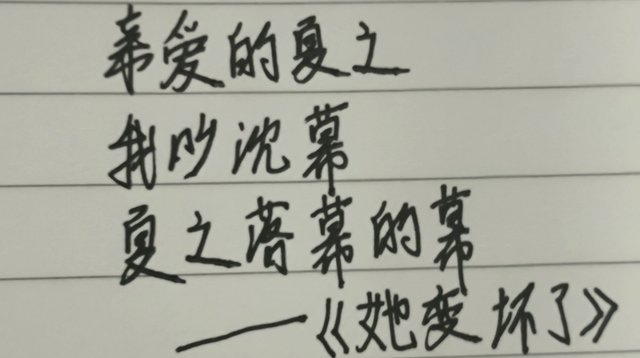 亲爱的夏之
我吵沈幕
夏之落幕的幕
——《她变坏了》